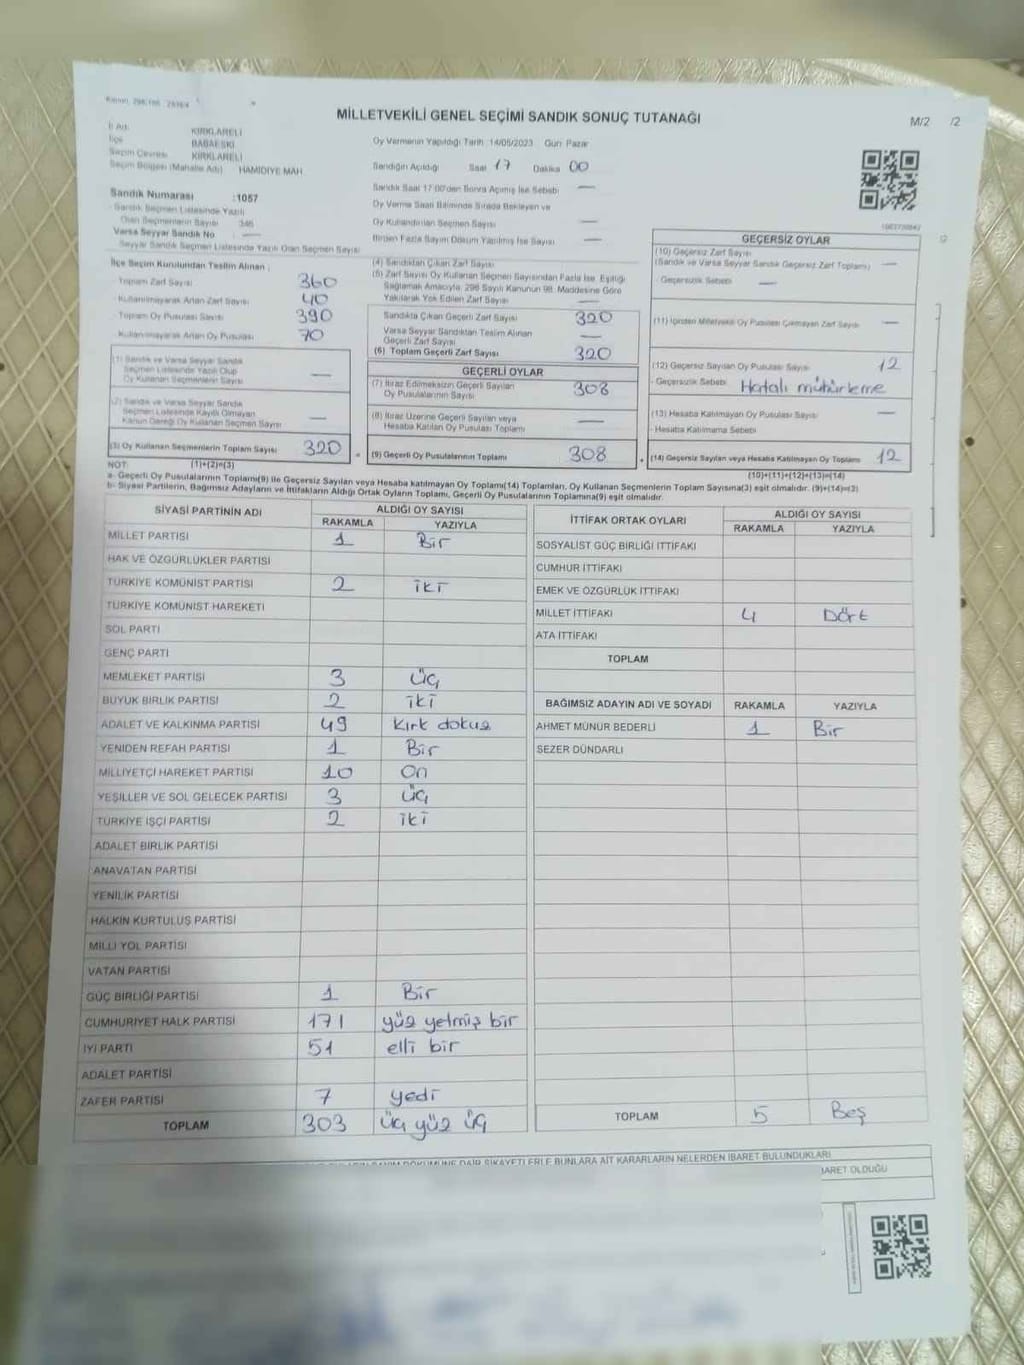 MİLLETVEKİLİ GENEL SEÇİMİ SANDIK SONUÇ TUTANAĞI
M/2 /2
İl Adı: KIRKLARELİ
İlçe BABAESKİ
Seçim Çevresi KIRKLARELİ
Seçim Bölgesi (Mahalle Adı) HAMİDİYE MAH.
Oy Vermenin Yapıldığı Tarih :14/05/2023 Gün: Pazar
Sandığın Açıldığı Saat 17 Dakika 00
Sandık Saat 17:00'den Sonra Açılmış İse Sebebi —
Oy Verme Saati Bitiminde Sırada Bekleyen ve
Oy Kullandırılan Seçmen Sayısı —
Birden Fazla Sayım Döküm Yapılmış İse Sayısı —
Sandık Numarası :1057
Sandık Seçmen Listesinde Yazılı
Olan Seçmenlerin Sayısı 346
Varsa Seyyar Sandık No —
Seyyar Sandık Seçmen Listesinde Yazılı Olan Seçmen Sayısı
İlçe Seçim Kurulundan Teslim Alınan ;
Toplam Zarf Sayısı 360
Kullanılmayarak Artan Zarf Sayısı 40
Toplam Oy Pusulası Sayısı 390
Kullanılmayarak Artan Oy Pusulası 70
(1) Sandık ve Varsa Seyyar Sandık
Seçmen Listesinde Yazılı Olup
Oy Kullanan Seçmenlerin Sayısı —
(2) Sandık ve Varsa Seyyar Sandık
Seçmen Listesinde Kayıtlı Olmayan
Kanun Gereği Oy Kullanan Seçmen Sayısı —
(3) Oy Kullanan Seçmenlerin Toplam Sayısı 320
(4) Sandıktan Çıkan Zarf Sayısı
(5) Zarf Sayısı Oy Kullanan Seçmen Sayısından Fazla İse, Eşitliği
Sağlamak Amacıyla, 298 Sayılı Kanunun 98. Maddesine Göre
Yakılarak Yok Edilen Zarf Sayısı —
Sandıkta Çıkan Geçerli Zarf Sayısı 320
Varsa Seyyar Sandıktan Teslim Alınan
Geçerli Zarf Sayısı —
(6) Toplam Geçerli Zarf Sayısı 320
GEÇERLİ OYLAR
(7) İtiraz Edilmeksizin Geçerli Sayılan
Oy Pusulalarının Sayısı 308
(8) İtiraz Üzerine Geçerli Sayılan veya
Hesaba Katılan Oy Pusulası Toplamı —
(9) Geçerli Oy Pusulalarının Toplamı 308
GEÇERSİZ OYLAR
(10) Geçersiz Zarf Sayısı
(Sandık ve Varsa Seyyar Sandık Geçersiz Zarf Toplamı) —
- Geçersizlik Sebebi —
(11) İçinden Milletvekili Oy Pusulası Çıkmayan Zarf Sayısı —
(12) Geçersiz Sayılan Oy Pusulası Sayısı 12
- Geçersizlik Sebebi Hatalı mühürleme
(13) Hesaba Katılmayan Oy Pusulası Sayısı —
- Hesaba Katılmama Sebebi
(14) Geçersiz Sayılan veya Hesaba Katılmayan Oy Toplamı 12
NOT: (1)+(2)=(3)
(10)+(11)+(12)+(13)=(14)
a- Geçerli Oy Pusulalarının Toplamı(9) ile Geçersiz Sayılan veya Hesaba katılmayan Oy Toplamı(14) Toplamları, Oy Kullanan Seçmenlerin Toplam Sayısına(3) eşit olmalıdır. (9)+(14)=(3)
b- Siyasi Partilerin, Bağımsız Adayların ve İttifakların Aldığı Ortak Oyların Toplamı, Geçerli Oy Pusulalarının Toplamına(9) eşit olmalıdır.
SİYASİ PARTİNİN ADI ALDIĞI OY SAYISI
RAKAMLA YAZIYLA
MİLLET PARTİSİ 1 Bir
HAK VE ÖZGÜRLÜKLER PARTİSİ
TÜRKİYE KOMÜNİST PARTİSİ 2 iki
TÜRKİYE KOMÜNİST HAREKETİ
SOL PARTİ
GENÇ PARTİ
MEMLEKET PARTİSİ 3 Üç
BÜYÜK BİRLİK PARTİSİ 2 iki
ADALET VE KALKINMA PARTİSİ 49 kırk dokuz
YENİDEN REFAH PARTİSİ 1 Bir
MİLLİYETÇİ HAREKET PARTİSİ 10 On
YEŞİLLER VE SOL GELECEK PARTİSİ 3 Üç
TÜRKİYE İŞÇİ PARTİSİ 2 iki
ADALET BİRLİK PARTİSİ
ANAVATAN PARTİSİ
YENİLİK PARTİSİ
HALKIN KURTULUŞ PARTİSİ
MİLLİ YOL PARTİSİ
VATAN PARTİSİ
GÜÇ BİRLİĞİ PARTİSİ 1 Bir
CUMHURİYET HALK PARTİSİ 171 yüz yetmiş bir
İYİ PARTİ 51 elli bir
ADALET PARTİSİ
ZAFER PARTİSİ 7 yedi
TOPLAM 303 Üç yüz üç
İTTİFAK ORTAK OYLARI ALDIĞI OY SAYISI
RAKAMLA YAZIYLA
SOSYALİST GÜÇ BİRLİĞİ İTTİFAKI
CUMHUR İTTİFAKI
EMEK VE ÖZGÜRLÜK İTTİFAKI
MİLLET İTTİFAKI 4 Dört
ATA İTTİFAKI
TOPLAM
BAĞIMSIZ ADAYIN ADI VE SOYADI RAKAMLA YAZIYLA
AHMET MÜNÜR BEDERLİ 1 Bir
SEZER DÜNDARLI
TOPLAM 5 Beş
DÖKÜMÜNE DAİR ŞİKAYETLERLE BUNLARA AİT KARARLARIN NELERDEN İBARET BULUNDUKLARI
İBARET OLDUĞU